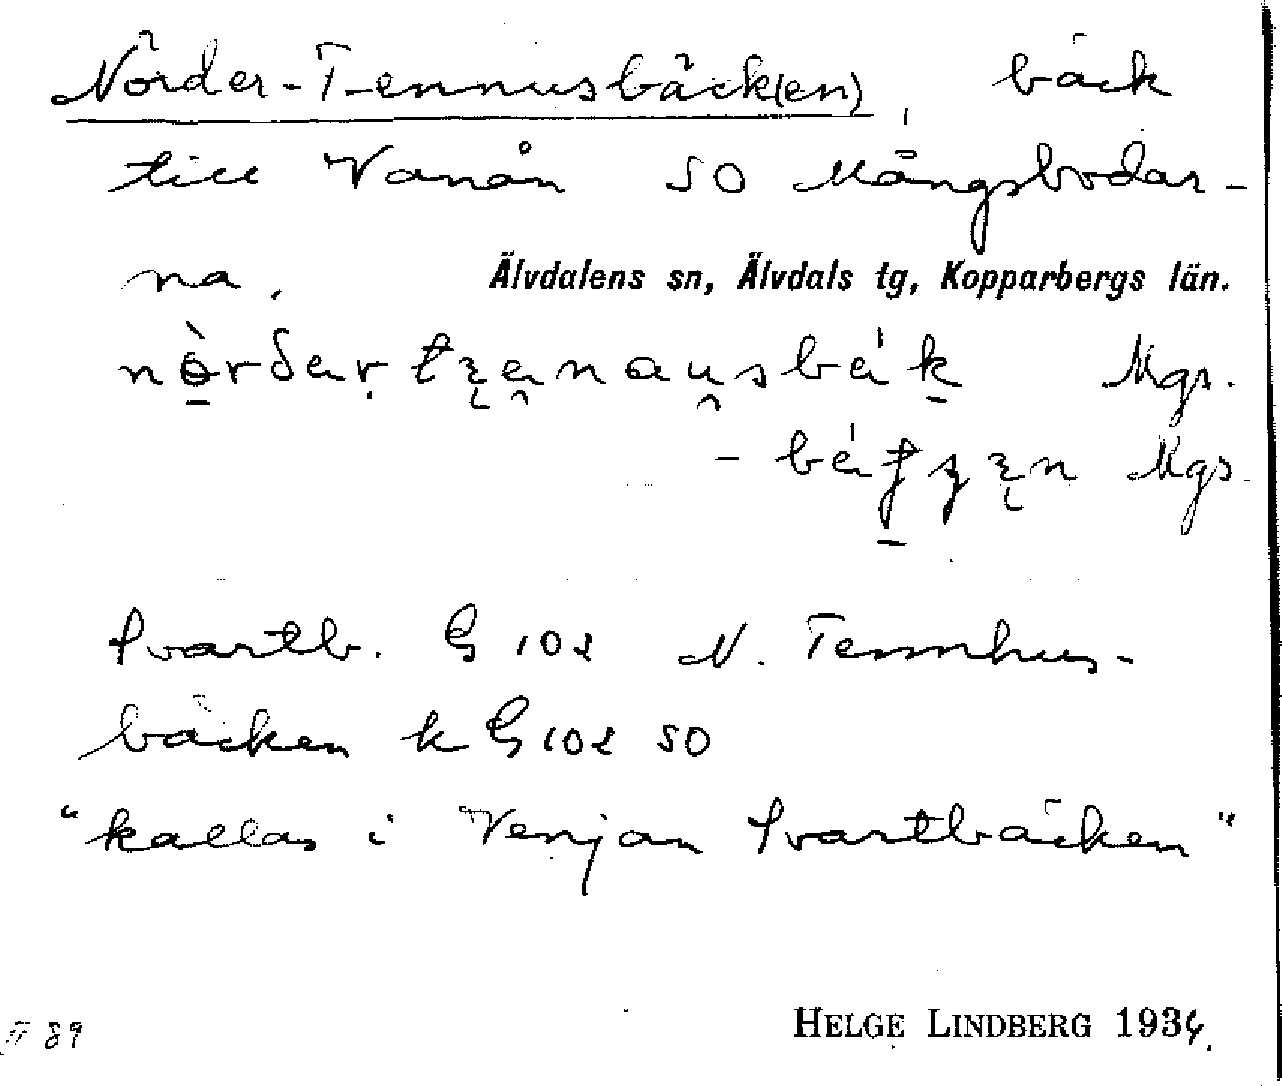 Nörder-Tennusbäck(en), bäck
till Vanån SO Mångsbodar-
na.
Älvdalens sn, Älvdals tg, Kopparbergs län.
Mgs.
Mgs.
Svartb. G 102 N. Tennhus-
bäcken k G 102 SO
"kallas i Venjan Svartbäcken"
HELGE LINDBERG 1934.
89